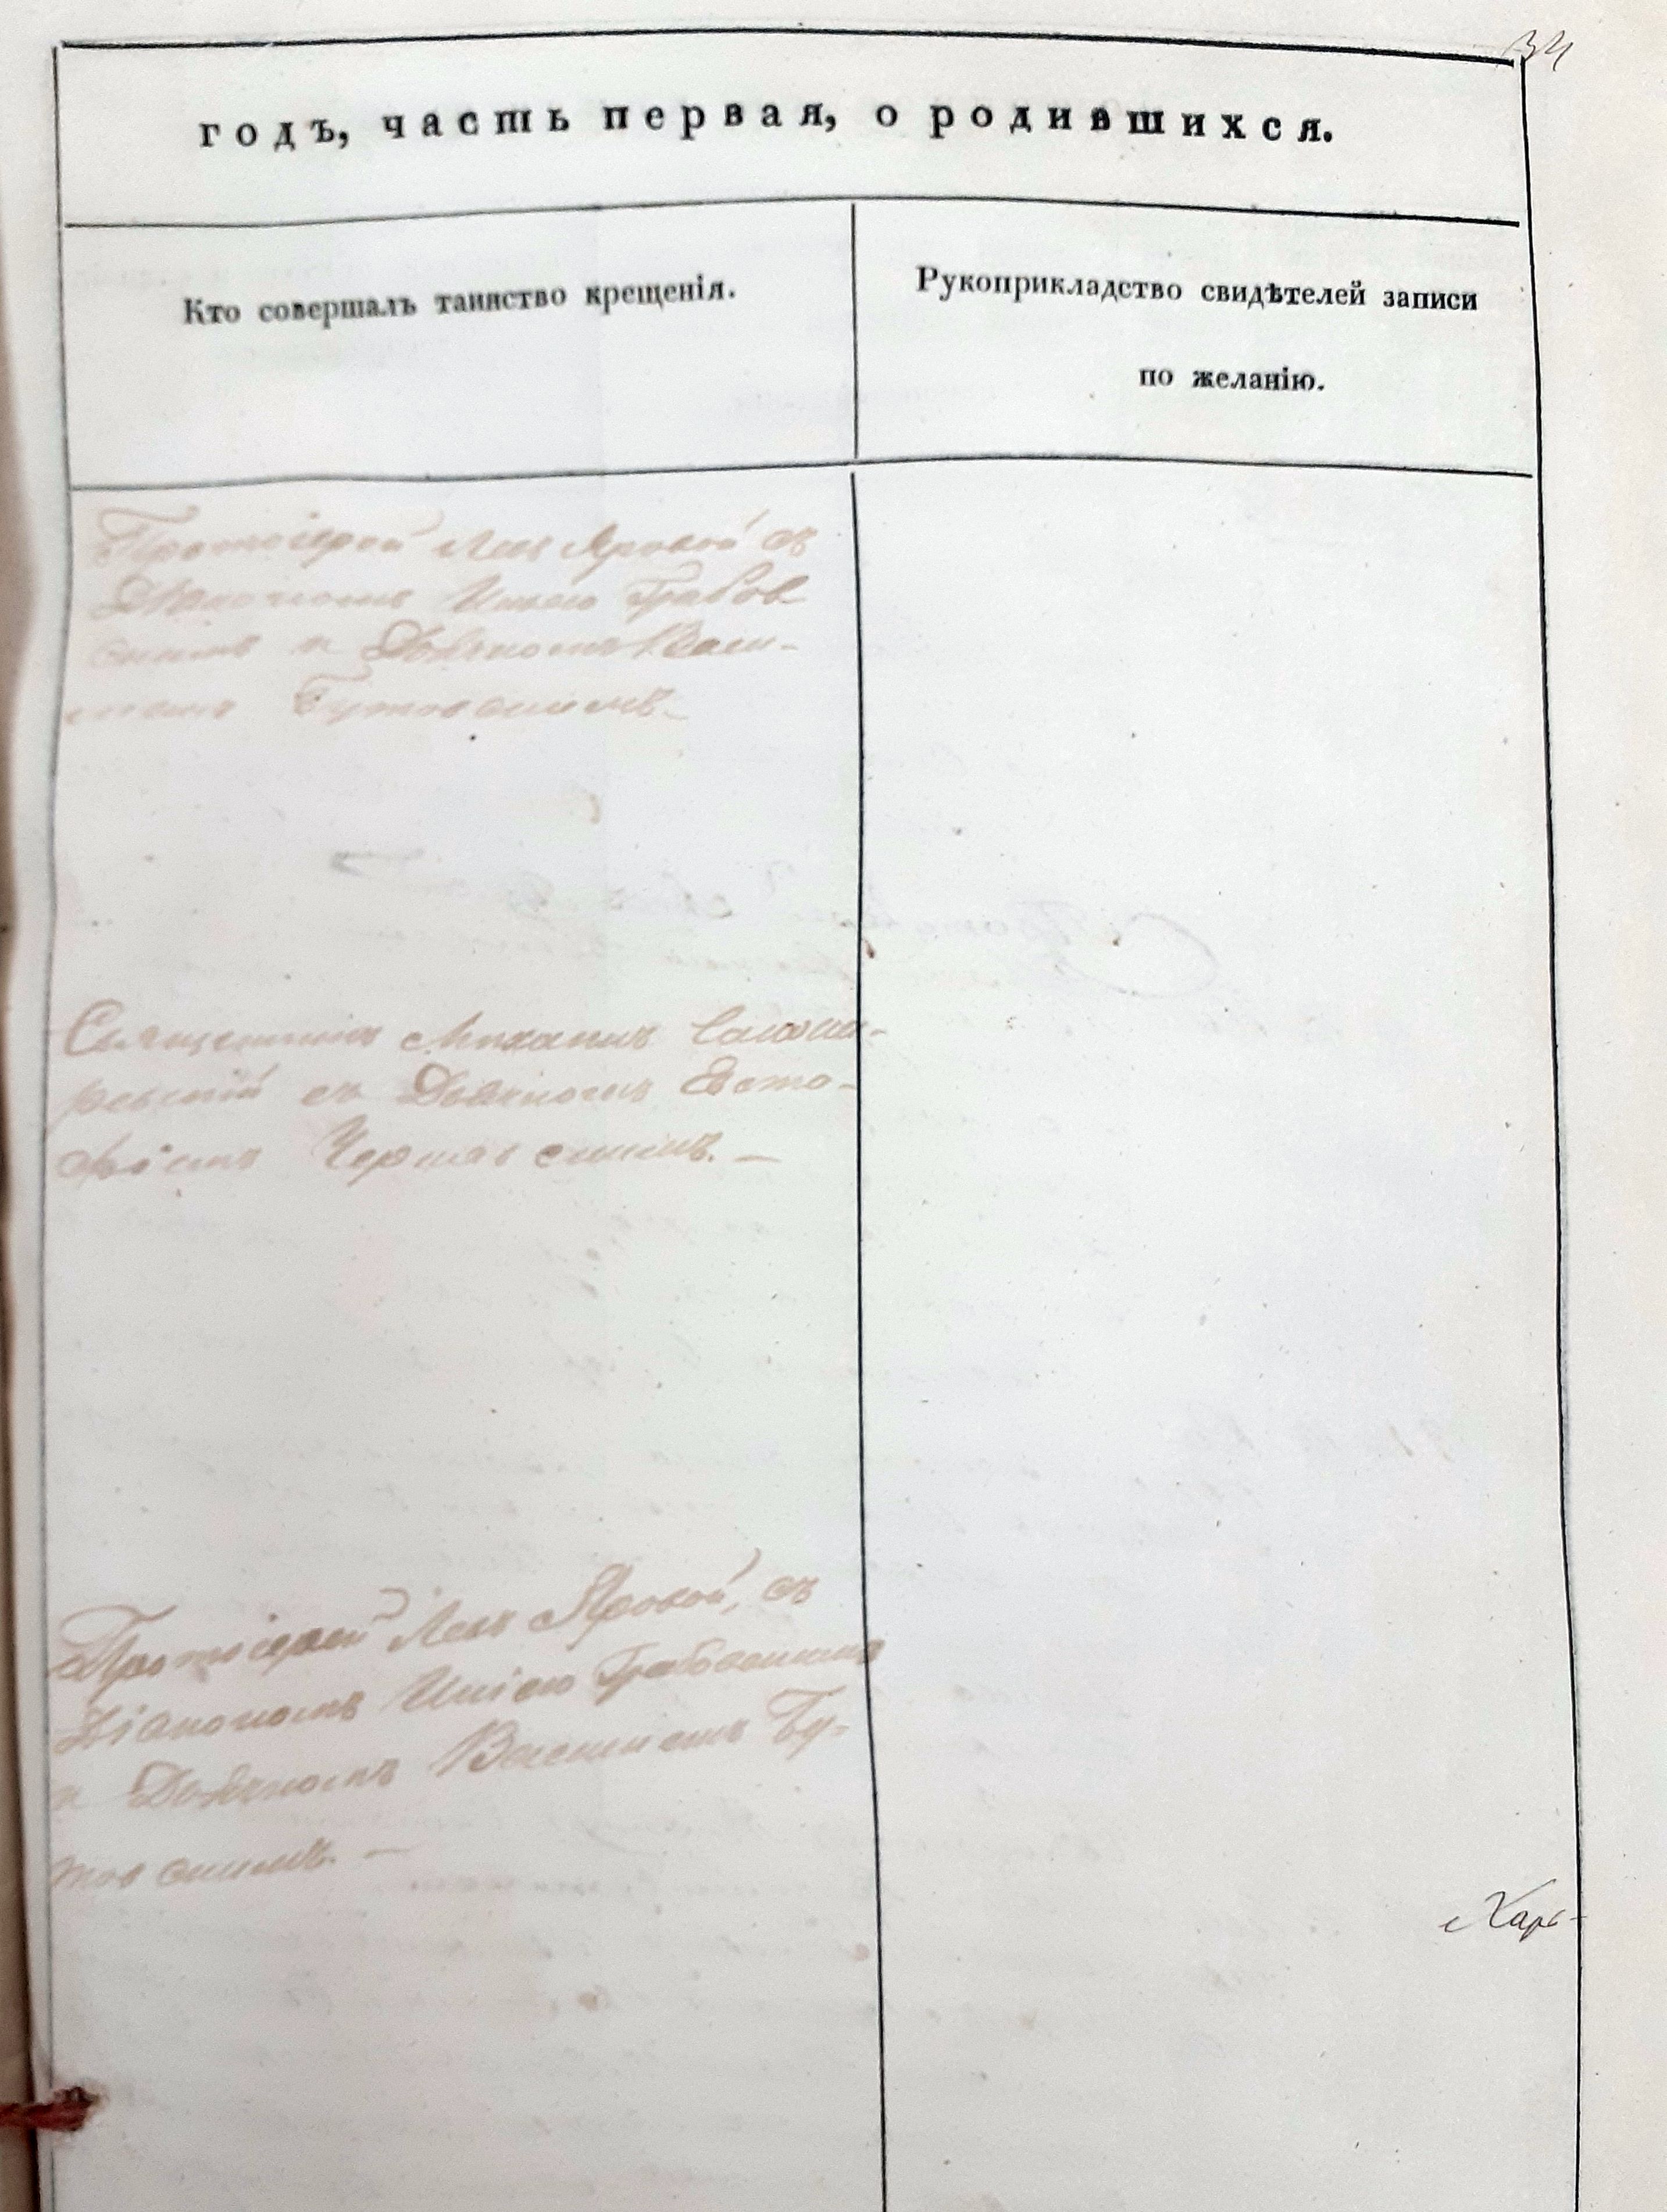 34
годъ, часть первая, о родившихся.
Кто совершалъ таинство крещенія.
Рукоприкладство свидѣтелей записи
по желанію.
Протоіерей Левъ Яровой съ
Діакономъ Илією Грабов
скимъ и Дьячкомъ Васи-
ліемъ Бутовскимъ
Священникъ Михаилъ
съ Дьячкомъ Евста-
фіемъ Чернявскимъ. —
Протоіерей Левъ Яровой, съ
Діакономъ Илією Грабовскимъ
и Дьячкомъ Василіемъ Бу-
товскимъ. —
Харь-